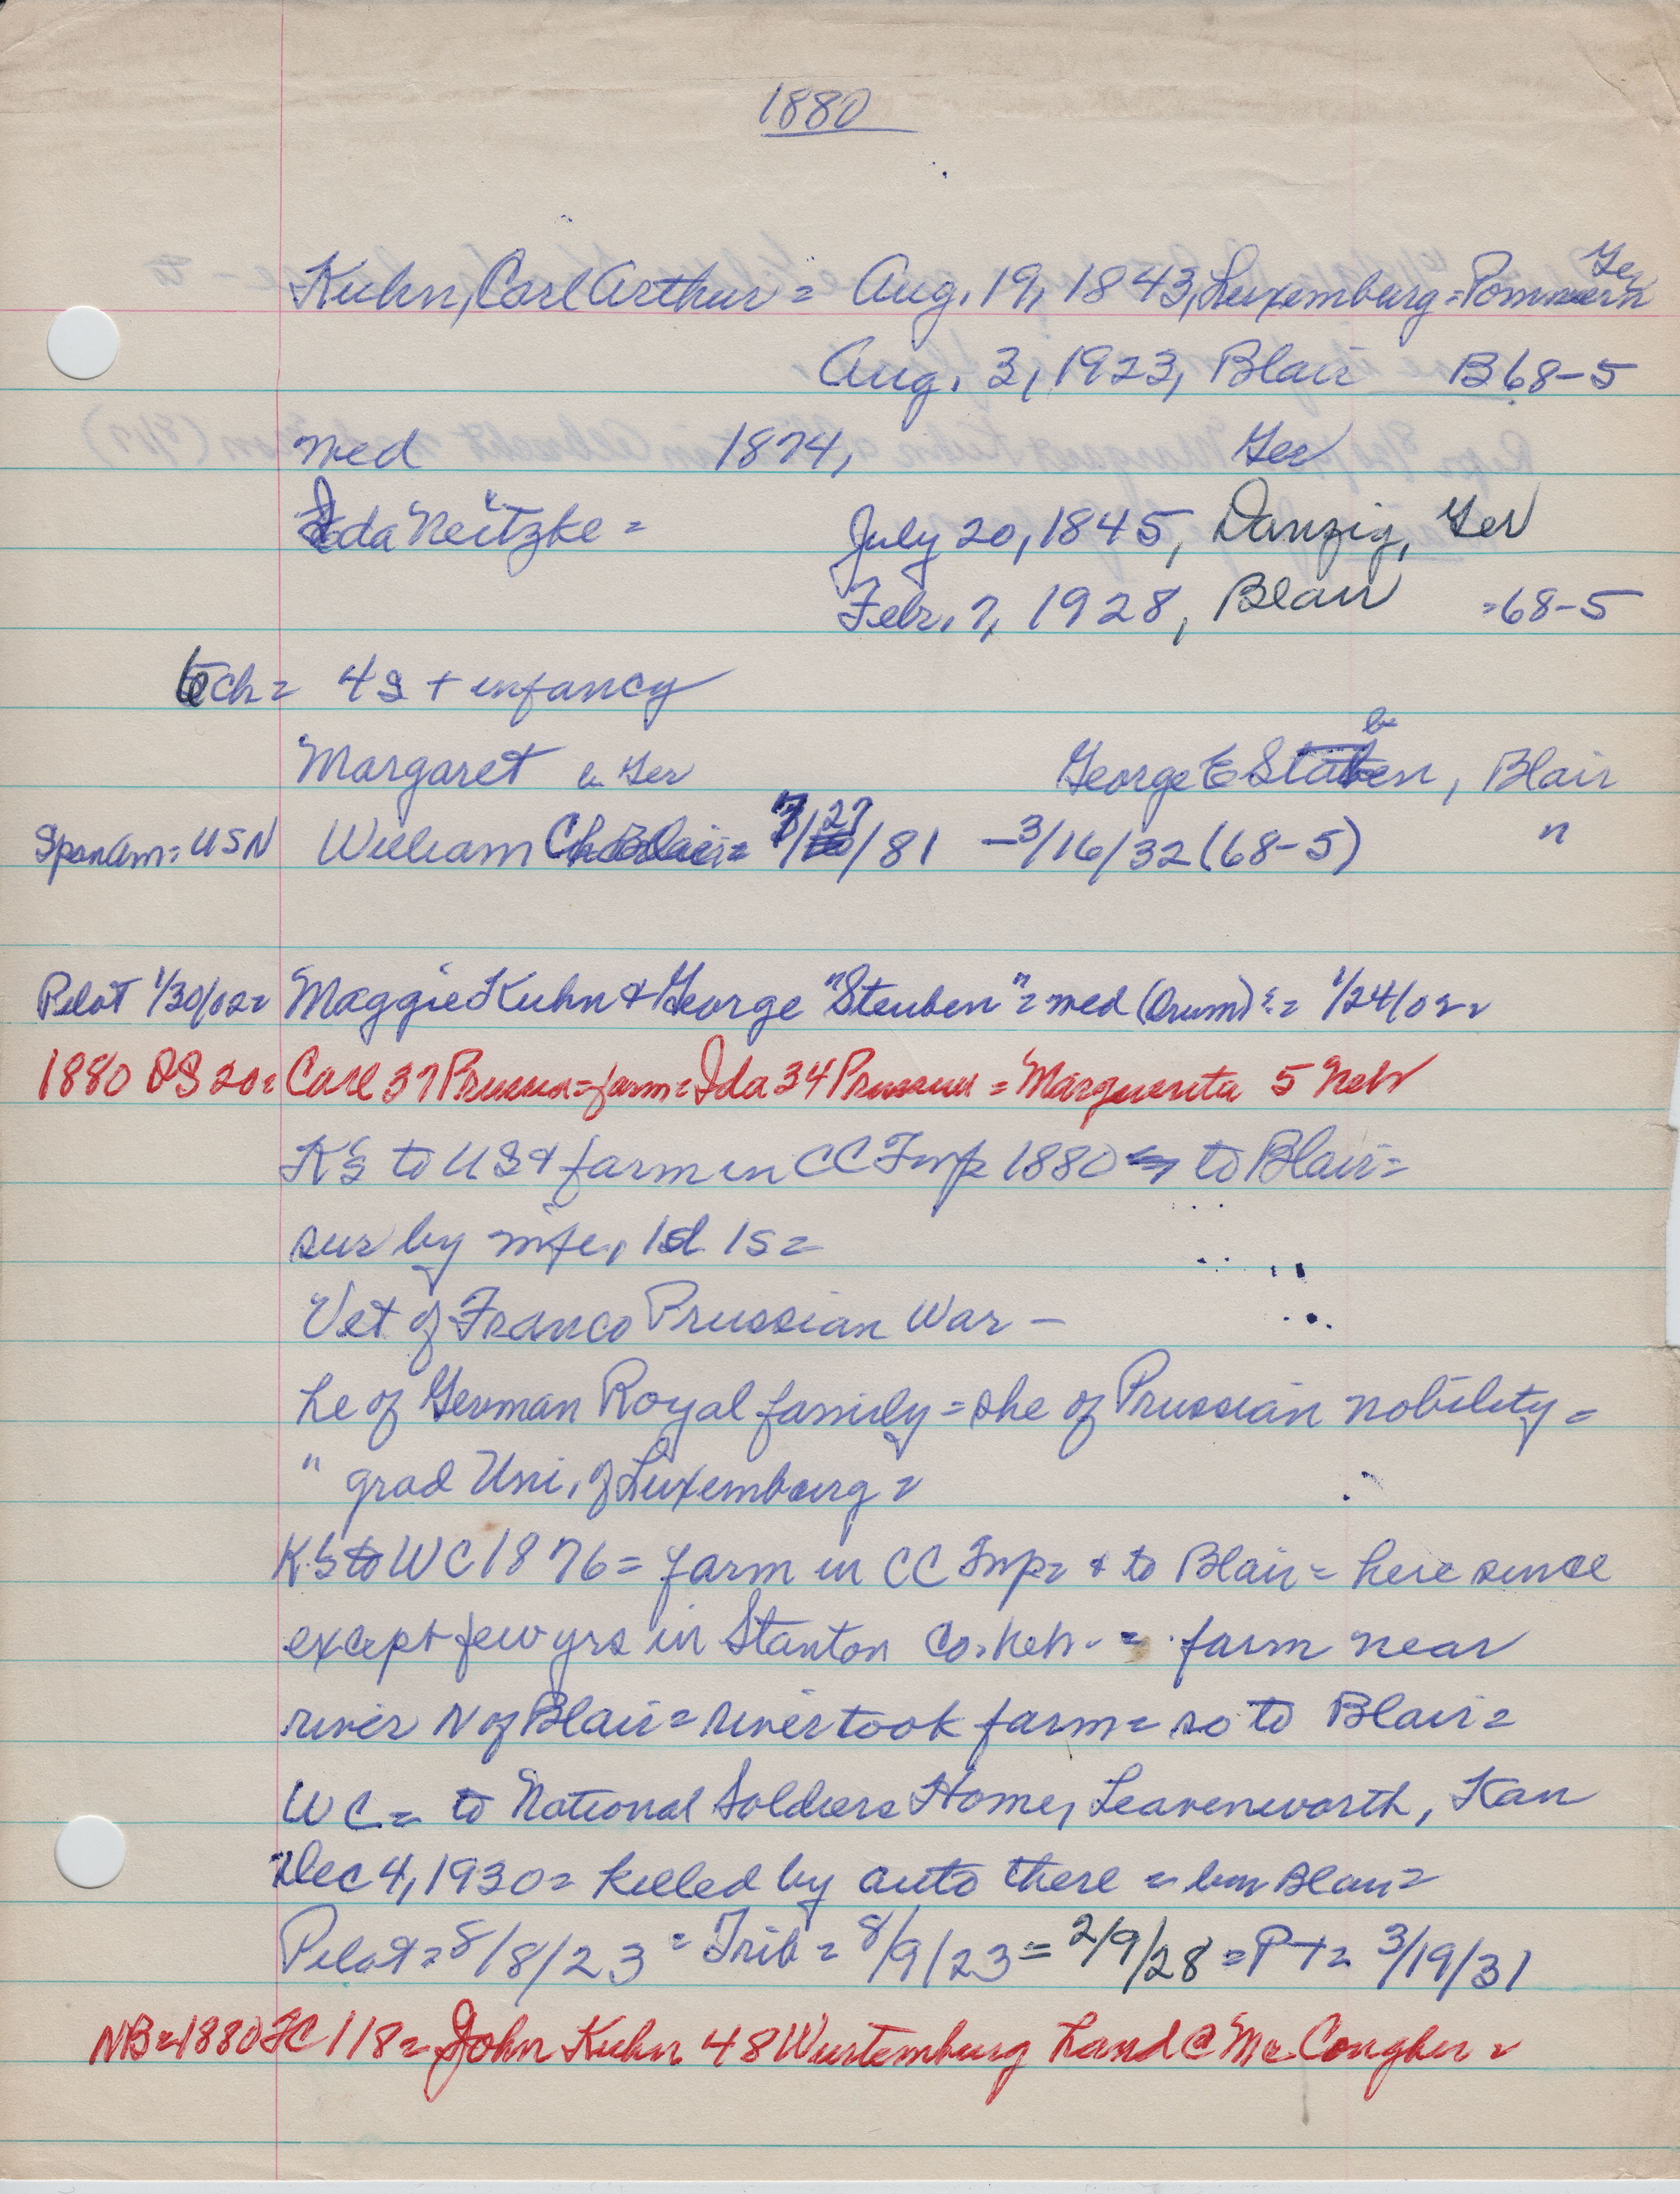 1880
Kuhn, Carl Arthur = Aug. 19, 1843, Luxemburg = Pommern Ger
Aug. 3, 1923, Blair B68-5
med 1874, Ger
Ida Neitzke = July 20, 1845, Danzig, Ger
Febr. 7, 1928, Blair =68-5
6 ch = 4 S + infancy
Margaret b Ger George E Staben, Blair
SpanAm = USN William Ch Blair = 7/27/81 – 3/16/32 (68-5) "
Pilot 1/30/02 = Maggie Kuhn & George "Steuben" = med (Orum) = 1/24/02 =
1880 DS 20 = Carl 37 Prussia = farm = Ida 34 Prussia = Marguerita 5 Neb
K's to US & farm in CC Twp 1880 to Blair =
sur by wife, 1d 1s =
Vet of Franco Prussian War –
he of German Royal family = she of Prussian nobility =
" grad Uni. of Luxemburg =
K's to WC 1876 = farm in CC Twp = & to Blair = here since
except few yrs in Stanton Co. Neb. = farm near
river N of Blair = river took farm = so to Blair =
WC = to National Soldiers Home, Leavenworth, Kan
Dec 4, 1930 = killed by auto there = bur Blair =
Pilot = 8/8/23 = Trib = 8/9/23 = 2/9/28 = PT = 3/19/31
NB = 1880 FC 118 = John Kuhn 48 Wurtemburg hand @ Mc